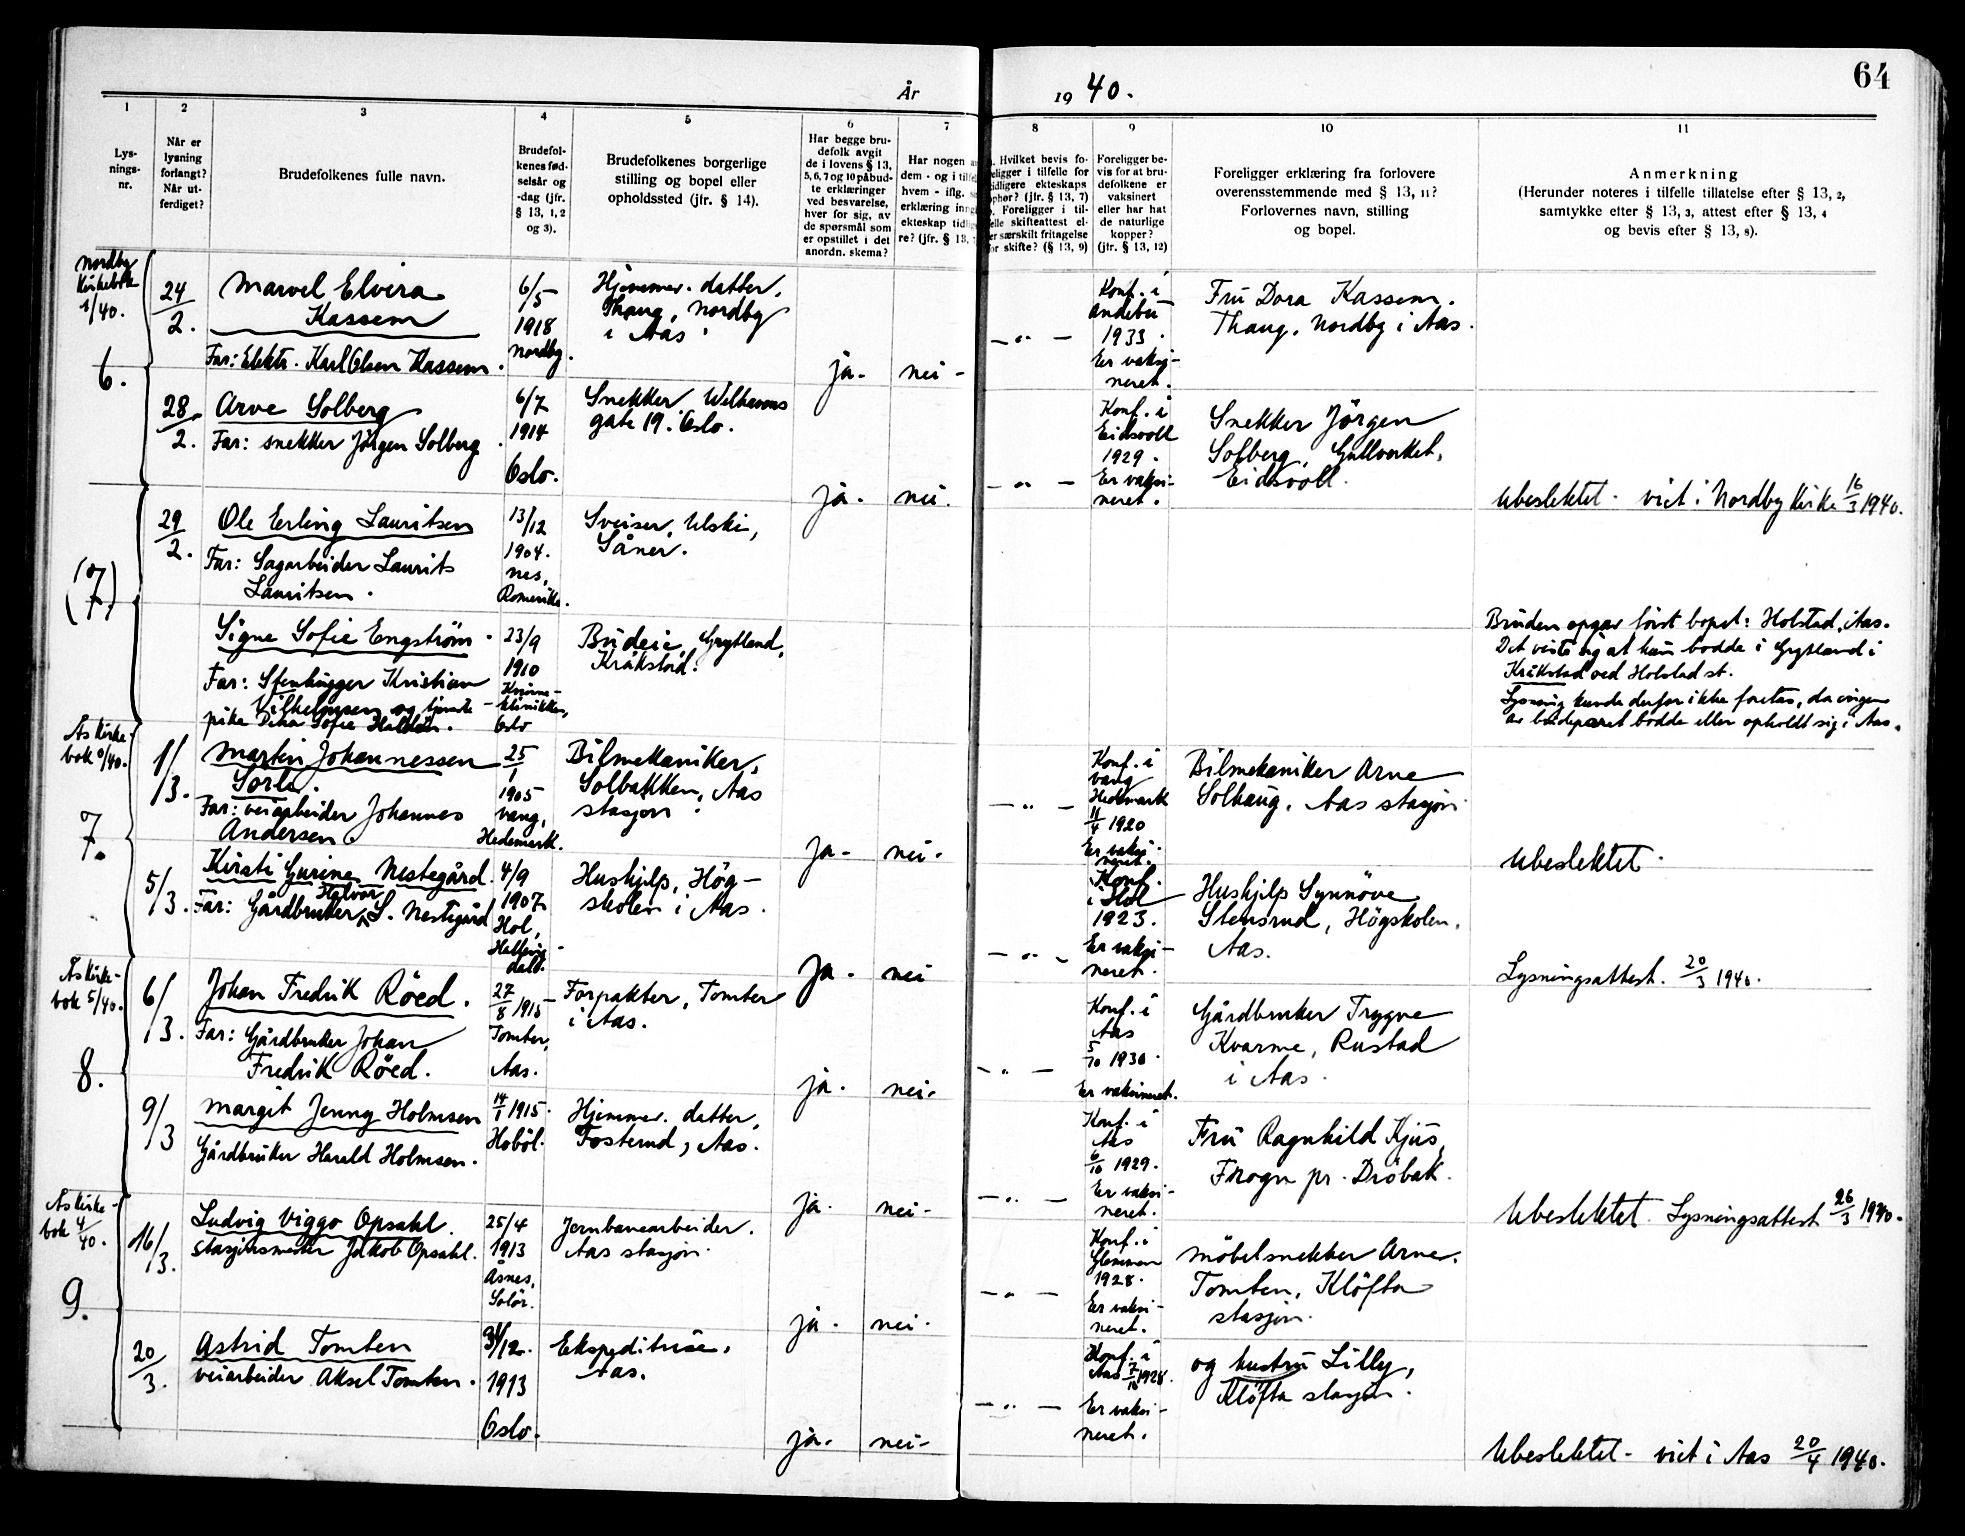 64
År
19 40.
1
2
3
4
5
6
7
8
9
10
11
Lys-
nings-
nr.
Når er
lysning
forlangt?
Når ut-
ferdiget?
Brudefolkenes fulle navn.
Brudefol-
kenes fød-
selsår og
-dag (jfr.
§ 13, 1, 2
og 3).
Brudefolkenes borgerlige
stilling og bopel eller
opholdssted (jfr. § 14).
Har begge bru-
defolk avgit
de i lovens § 13,
5, 6, 7 og 10 påbud-
te erklæringer
ved besvarelse,
hver for sig, av
de spørsmål som
er opstillet i det
anordn. skema?
Har nogen
dem - og i
hvem - iflg.
erklæring
ekteskap
re? (jfr. § 13,
Hvilket bevis fo-
religger i tilfelle for
tidligere ekteskaps
ophør? (jfr. § 13, 7)
Foreligger i til-
felle skifteattest el-
ler særskilt fritagelse
for skifte? (§ 13, 9)
Foreligger be-
vis for at bru-
defolkene er
vaksinert
eller har hat
de naturlige
kopper?
(jfr. § 13, 12)
Foreligger erklæring fra forlovere
overensstemmende med § 13, 11?
Forlovernes navn, stilling
og bopel.
Anmerkning
(Herunder noteres i tilfelle tillatelse efter § 13, 2,
samtykke efter § 13, 3, attest efter § 13, 4
og bevis efter § 13, 8).
Nordby
Kirkebok
1/40.
6.
24/2.
Marvel Elvira
Kassem
Far: Elektr. Karl Olsen Kassem.
6/5
1918
Nordby.
Hjemmev. datter.
Thaug, Nordby
i Aas.
ja.
nei -
— " —
Konf. i
Andebu
1933.
Er vaksi-
neret.
Fru Dora Kassem.
Thaug, Nordby i Aas.
28/2.
Arve Solberg
Far: snekker Jörgen Solberg.
6/7
1914
Oslo.
Snekker. Welhavens
gate 19. Oslo.
ja.
nei.
— " —
Konf. i
Eidsvoll
1929.
Er vaksi-
neret.
Snekker Jörgen
Solberg, Gullverket,
Eidsvoll.
Ubeslektet. viet i Nordby Kirke 16/3 1940.
(7)
29/2.
Ole Erling Lauritsen
Far: Sagarbeider Laurits
Lauritsen.
13/12
1904.
Nes,
Romerike.
Sveiser, Ulski,
Såner.
Signe Sofie Engström.
Far: Stenhugger Kristian
Vilhelmsen og tjeneste-
pike Sofie
23/9
1910
Kvinne-
klinikken,
Oslo
Budeie, Grytland,
Kråkstad.
Bruden opgav först bopel: Holstad, Aas.
Det viste sig at hun bodde i Grytland i
Kråkstad ved Holstad st.
Lysning kunde derfor ikke foretas, da ingen
av brudeparet bodde eller opholdt sig i Aas.
Ås kirke-
bok /40.
7.
1/3.
Martin Johannessen
Sorli.
Far: veiarbeider Johannes
Andersen
25/1
1905
Vang,
Hedemark.
Bilmekaniker,
Solbakken, Aas
stasjon.
ja.
nei.
— " —
Konf. i
Vang
Hedmark
11/4 1920
Er vaksi-
neret.
Bilmekaniker Arne
Solhaug, Aas stasjon.
Ubeslektet.
5/3.
Kirsti Gurine Nestegård.
Far: Gårdbruker Halvor S. Nestegård
4/9
1907
Hol,
Halling-
dal.
Hushjelp, Hög-
skolen i Aas.
ja.
nei
— " —
Konf.
i Hol
1923.
Er vaksi-
neret.
Hushjelp Synnöve
Stensrud, Högskolen,
Aas.
Lysningsattest. 20/3 1940.
Ås kirke-
bok 5/40.
8.
6/3.
Johan Fredrik Röed.
Far: Gårdbruker Johan
Fredrik Röed.
27/8 1915
Tomter,
Aas.
Forpakter, Tomter
i Aas.
ja.
nei.
— " —
Konf. i
Aas
5/10 1930.
Er vaksineret.
Gårdbruker Trygve
Kvarme, Rustad
i Aas.
9/3
Margit Jenny Holmsen
Gårdbruker Harald Holmsen.
14/1 1915.
Hoböl.
Hjemmev. datter,
Fosterud, Aas.
ja.
nei-
— " —
Konf. i
Aas
6/10 1929.
Er vaksi-
neret.
Fru Ragnhild Kjus,
Frogn pr. Dröbak.
Ubeslektet. Lysningsattest 26/3 1940.
Ås kirke-
bok 4/40.
9.
16/3.
Ludvig Viggo Opsahl.
Stasjonsmester Jakob Opsahl.
25/4
1913
Åsnes,
Solör.
Jernbanearbeider.
Aas stasjon.
ja.
nei.
— " —
Konf. i
Glemmen
1928.
Er vaksi-
neret.
Möbelsnekker Arne
Tomten, Klöfta
stasjon.
20/3.
Astrid Tomten
veiarbeider Aksel Tomten.
31/12.
1913
Oslo.
Ekspeditrise,
Aas.
ja.
nei-
— " —
Konf. i
Aas 7/10 1928.
Er vaksi-
neret.
og hustru Lilly,
Klöfta stasjon.
Ubeslektet - viet i Aas 20/4 1940.